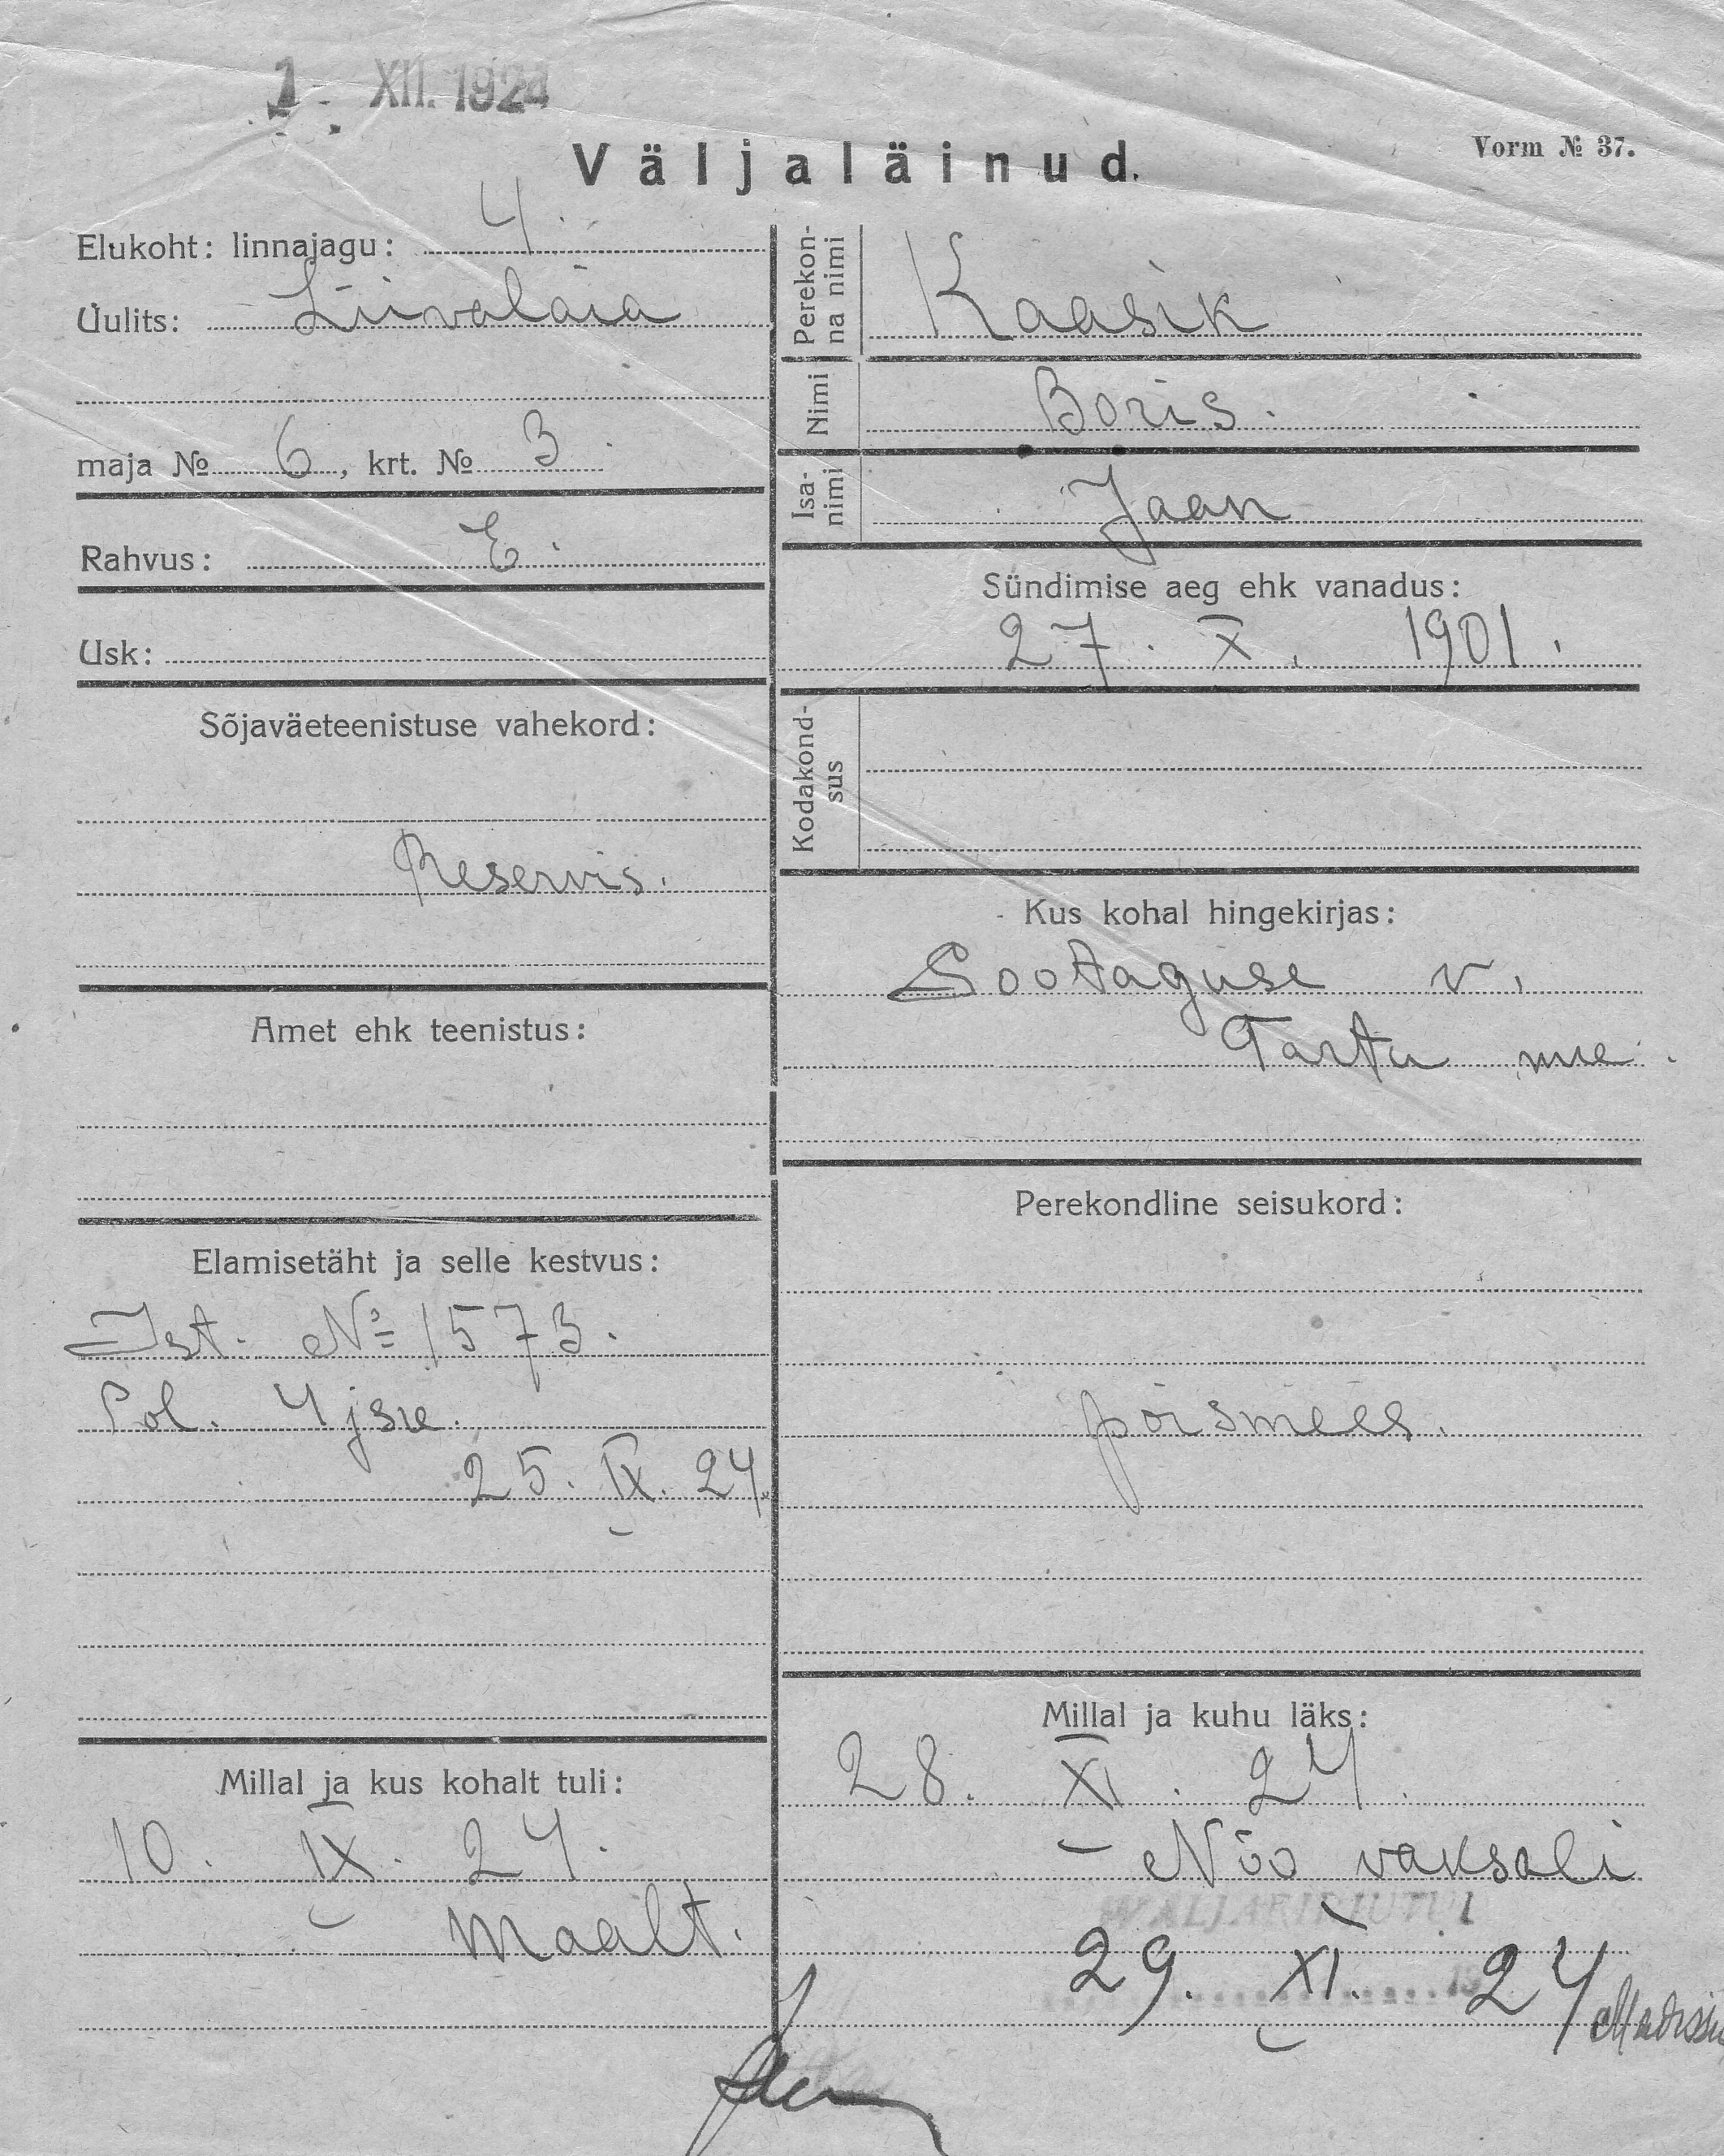 1. XII. 1924
Väljaläinud.
Vorm № 37.
Elukoht: linnajagu: 4.
Uulits: Liivalaia
maja № 6, krt. № 3.
Rahvus: E.
Usk:
Sõjaväeteenistuse vahekord:
Reservis.
Amet ehk teenistus:
Elamisetäht ja selle kestvus:
Ist. № 1573.
Pol. 4 jsk.
25. IX. 24.
Millal ja kus kohalt tuli:
10. IX. 24.
maalt.
Perekonna nimi Kaasik
Nimi Boris.
Isanimi Jaan
Sündimise aeg ehk vanadus:
27. X. 1901.
Kodakondsus
Kus kohal hingekirjas:
Sootaguse v.
Tartu mk.
Perekondline seisukord:
poismees.
Millal ja kuhu läks:
28. XI. 24.
Nõo vaksali
WÄLJAKIRJUTUD
29. XI. 24